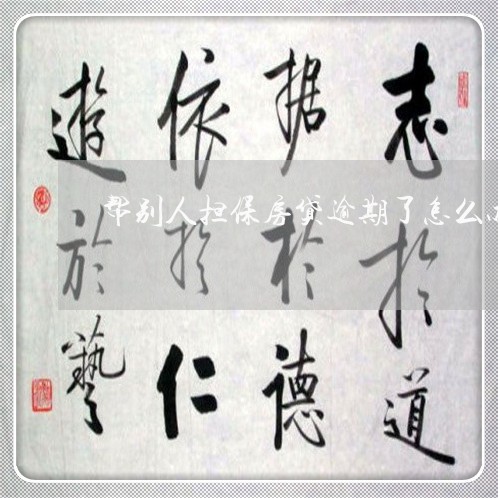 志扵道
据扵德
依扵仁
遊於藝
帮别人担保房贷逾期了怎么